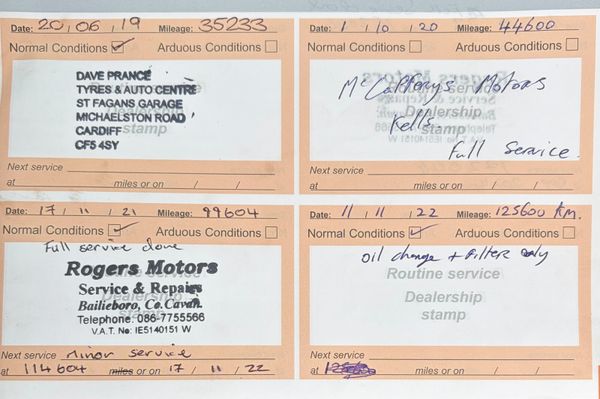 Date: 20 / 06 / 19 Mileage: 35233
Normal Conditions Arduous Conditions
DAVE PRANCE
TYRES & AUTO CENTRE
ST FAGANS GARAGE
MICHAELSTON ROAD
CARDIFF
CF5 4SY
Dealership
stamp
Next service
at miles or on / /
Date: 1 / 10 / 20 Mileage: 44600
Normal Conditions Arduous Conditions
McCaffreys Motors
Kells.
Full Service.
Routine service
Dealership
stamp
Next service
at miles or on / /
Date: 17 / 11 / 21 Mileage: 99604
Normal Conditions Arduous Conditions
Full service done
Rogers Motors
Service & Repairs
Bailieboro, Co. Cavan.
Telephone: 086-7755566
V.A.T. No: IE5140151 W
Dealership
stamp
Next service minor service
at 114604 miles or on 17 / 11 / 22
Date: 11 / 11 / 22 Mileage: 125600 KM.
Normal Conditions Arduous Conditions
oil change + filter only
Routine service
Dealership
stamp
Next service
at miles or on / /